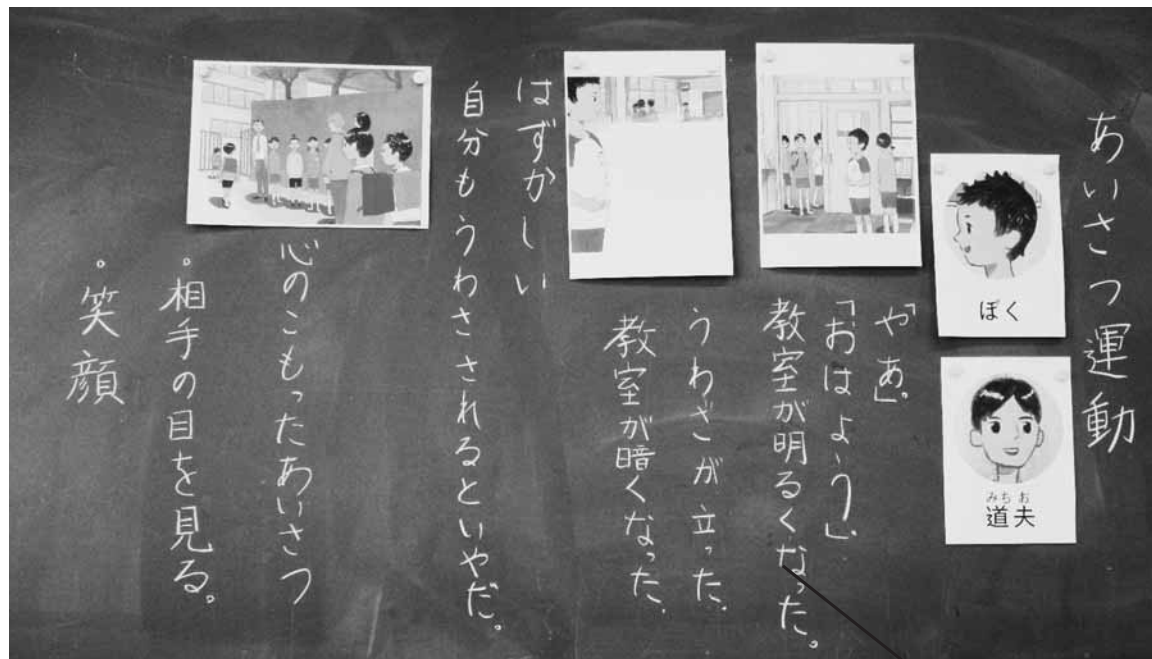 あいさつ運動
ぼく
みちお
道夫
「やあ」。
「おはよう」。
教室が明るくなった。
うわさが立った。
教室が暗くなった。
はずかしい
自分もうわさされるといやだ。
心のこもったあいさつ
・相手の目を見る。
・笑顔